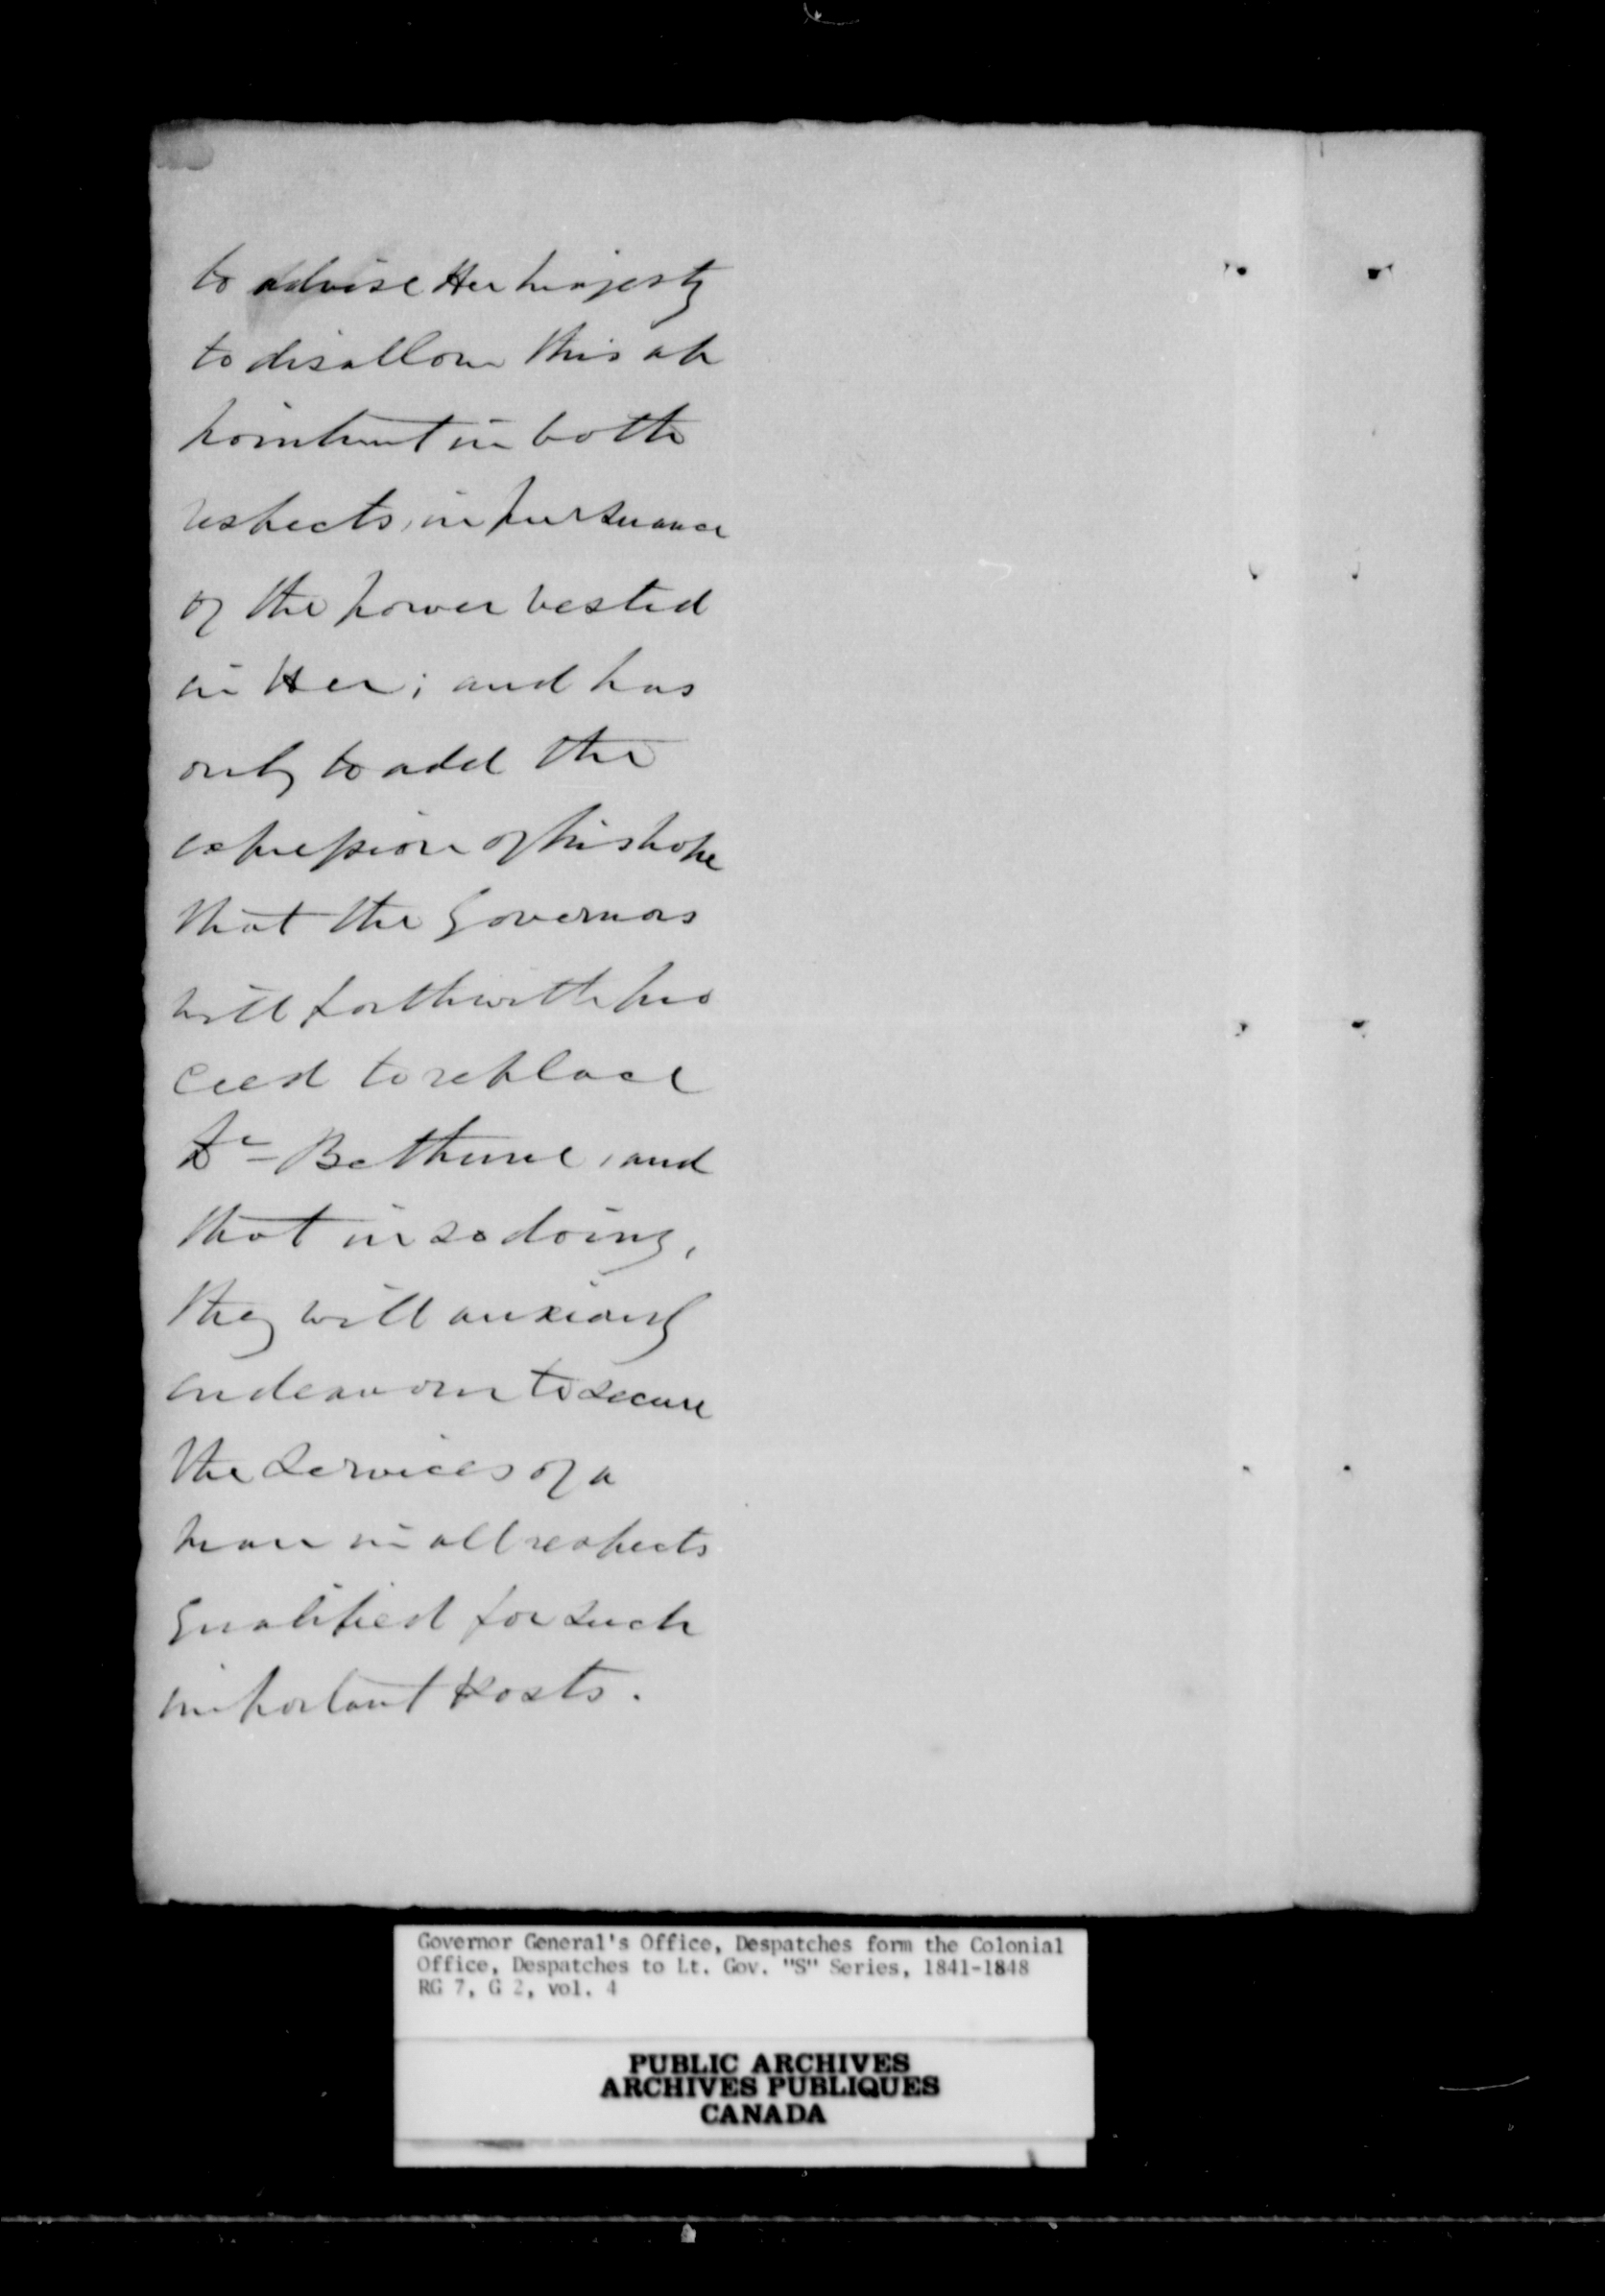 to advise Her Majesty
to disallow this ap
pointment in both
respects, in pursuance
of the power vested
in Her; and has
only to add the
expression of his hope
that the Governors
will forthwith pro
ceed to replace
Dr Bethune, and
that in so doing,
they will anxiously
endeavour to secure
the services of a
man in all respects
qualified for such
important Posts.
Governor General's Office, Despatches form the Colonial
Office, Despatches to Lt. Gov. "S" Series, 1841-1848
RG 7, G 2, vol. 4
PUBLIC ARCHIVES
ARCHIVES PUBLIQUES
CANADA